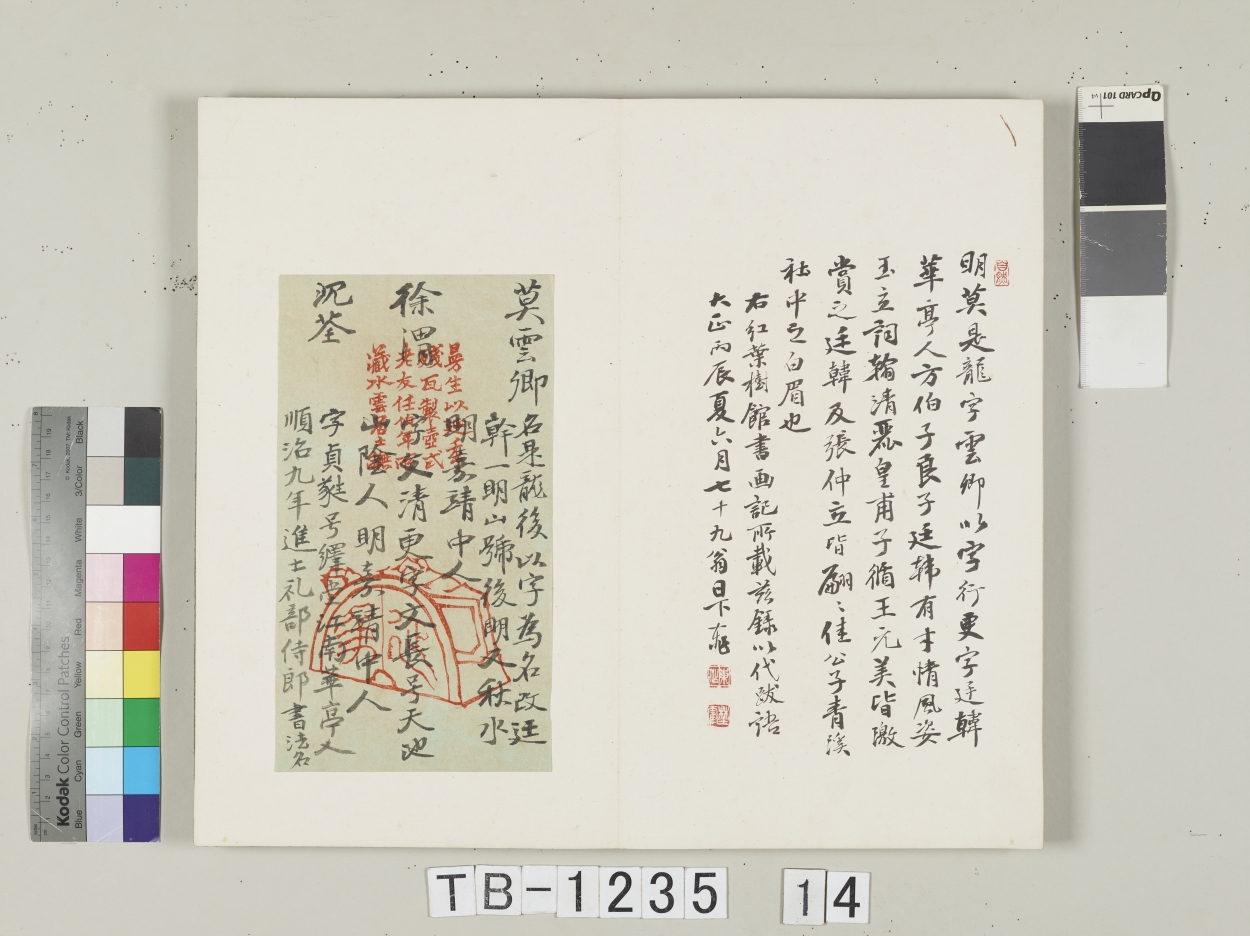 明莫是龍字雲卿以字行更字廷韓
華亭人方伯子良子廷韓有才情風姿
玉立詞翰清麗皇甫子循王元美皆激
賞之廷韓及張仲立皆翩〻佳公子青溪
社中之白眉也
右紅葉樹館書画記所載茲録以代跋語
大正丙辰夏六月七十九翁日下
莫雲卿
名是龍後以字為名改廷
幹一明山號後明又秋水
明嘉靖中人
徐渭
字文清更字文長号天池
山陰人明嘉靖中人
沈荃
字貞蕤号繹堂江南華亭人
順治九年進士礼部侍郎書法名
曼生以
瓦製壺式
老友任
藏水雲
TB-1235
14
QPCARD 101 v4
Kodak Color Control Patches
© Kodak, 2007 TM: Kodak
Blue
Cyan
Green
Yellow
Red
Magenta
White
3/Color
Black